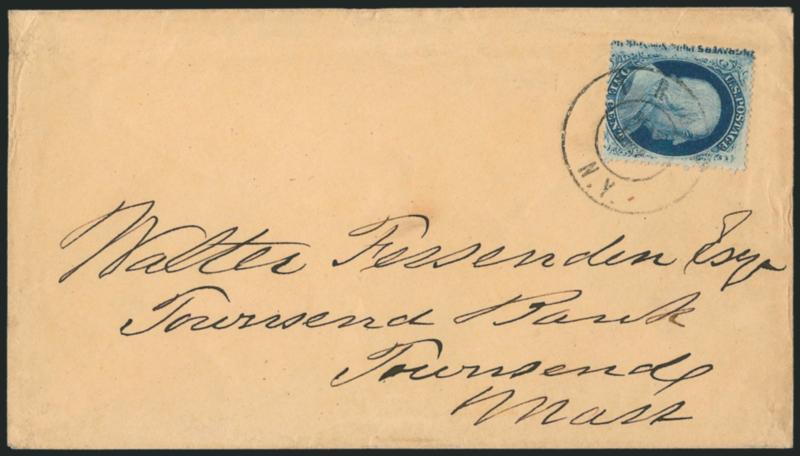 U.S. POSTAGE
ONE CENT
N.Y.
Walter Fessenden Esqr
Townsend Bank
Townsend
Mass